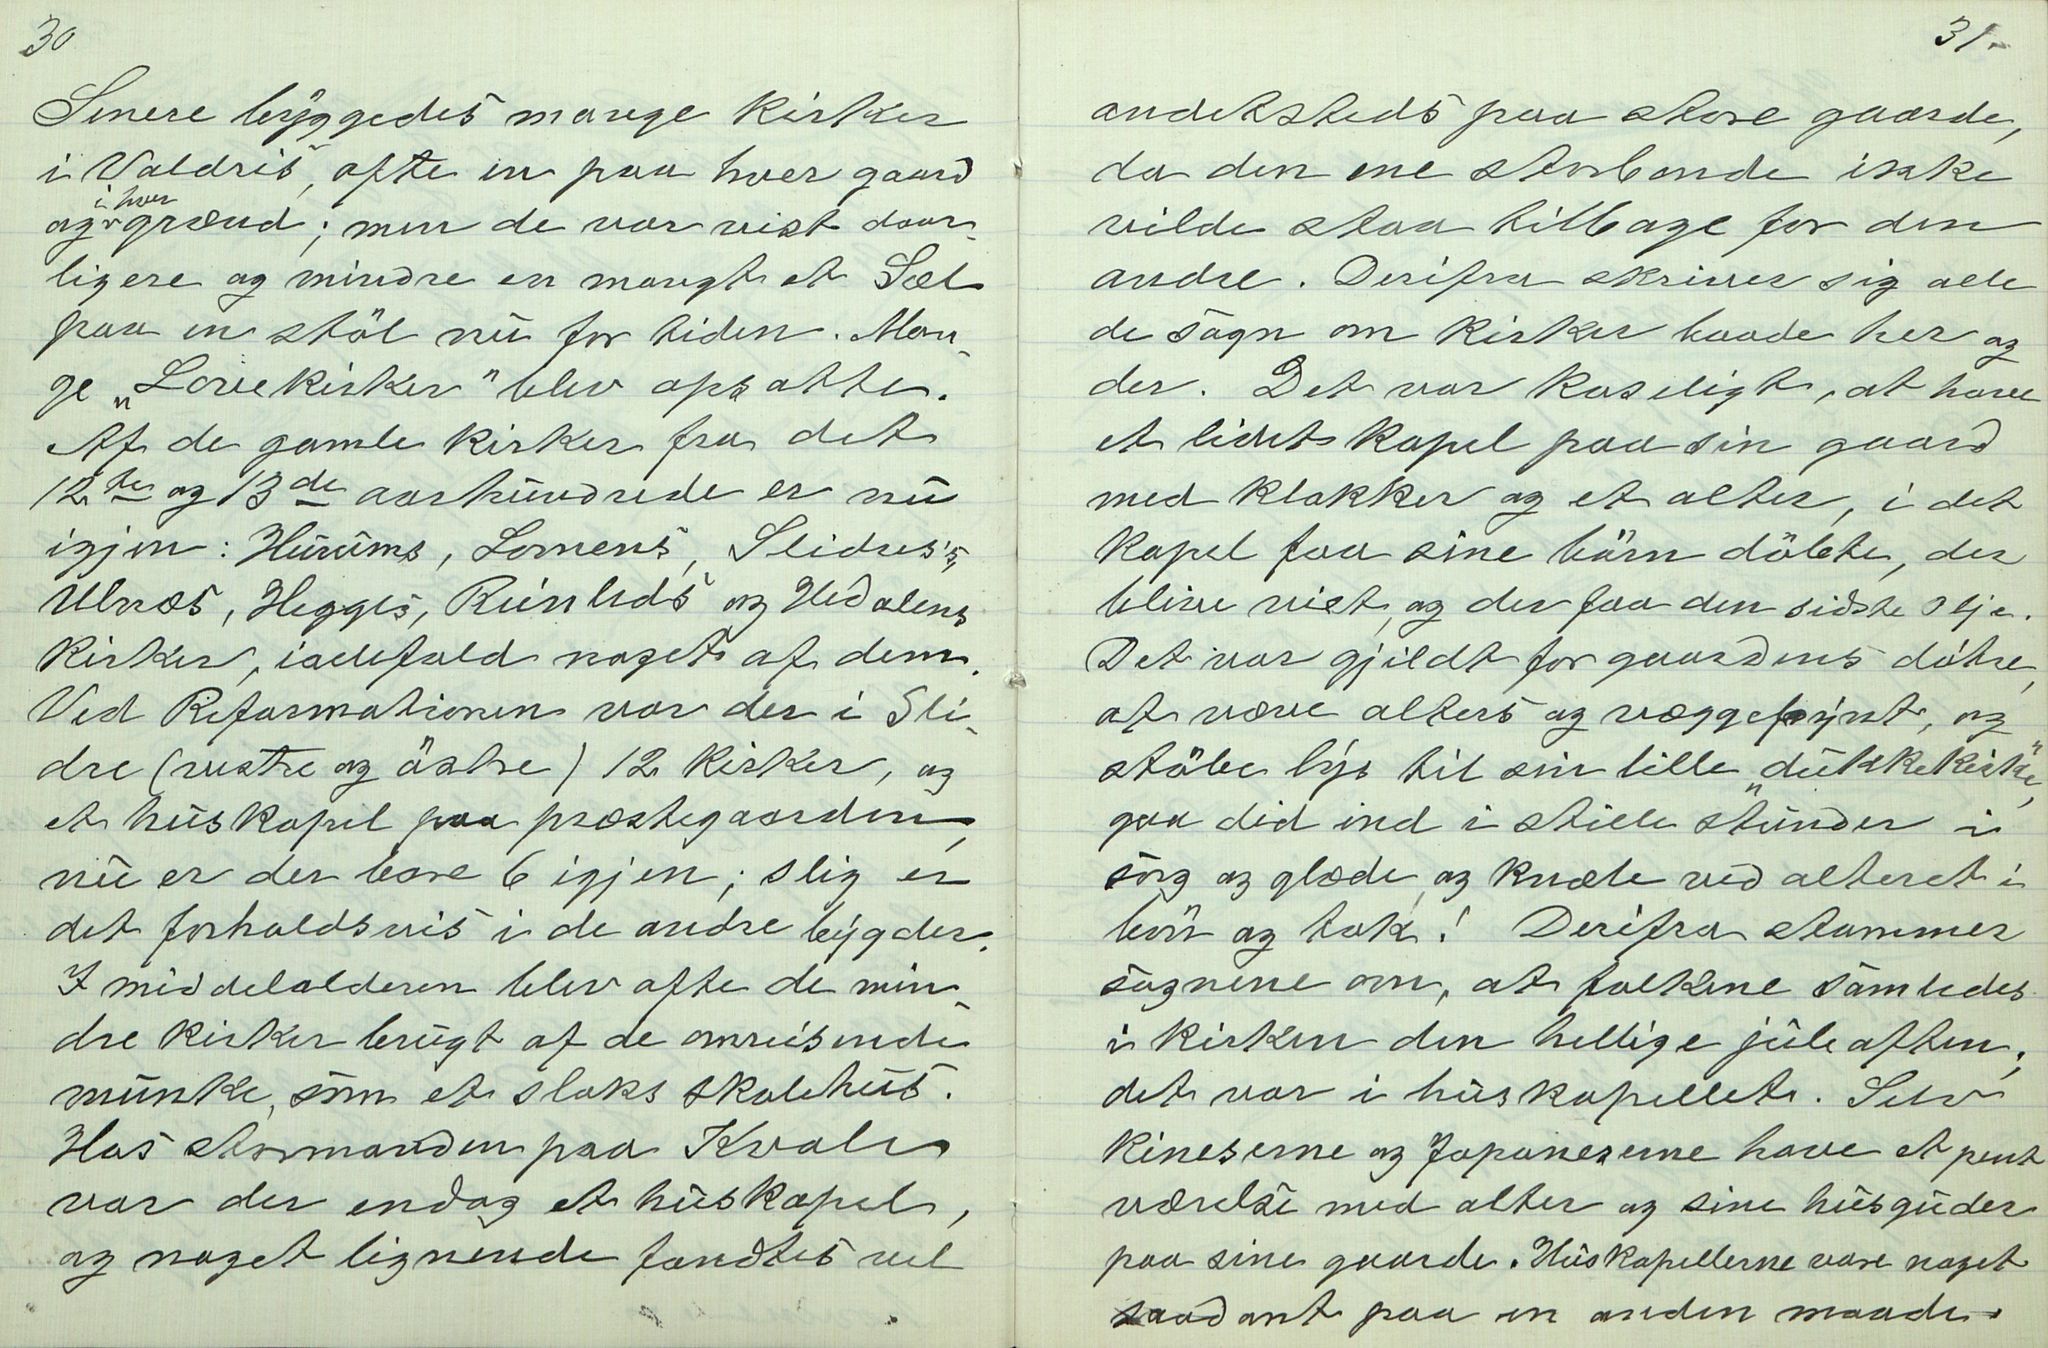 30
Senere byggedes mange kirker
i Valdris, ofte en paa hver gaard
og i hver grænd; men de var vist daar-
ligere og mindre en mangt et Sæl
paa en stöl nu for tiden. Man-
ge „Lovekirker" blev opsatte.
Af de gamle kirker fra det
12te og 13de aarhundrede er nu
igjen: Hurums, Lomens, Slidres's,
Ulnæs, Hegges, Reinlids og Hedalens
Kirker, iallefald noget af dem.
Ved Reformationen var der i Sli-
dre (vestre og östre) 12 kirker, og
et huskapel paa præstegaarden,
nu er der bare 6 igjen; slig er
det forholdsvis i de andre bygder.
I middelalderen blev ofte de min-
dre kirker brugt af de omreisende
munke, som et slaks skolehus.
Hos stormanden paa Kvale
var der endog et huskapel,
og noget lignende fandtes vel
31.
andetsteds paa store gaarde,
da den ene storbonde ikke
vilde staa tilbage for den
andre. Derifra skriver sig alle
de sagn om kirker baade her og
der. Det var koseligt, at have
et lidet kapel paa sin gaard
med klokker og et alter, i det
kapel faa sine börn döbte, der
blive viet, og der faa den sidste olje.
Det var gjildt for gaardens döttre,
at væve alters og væggepynt, og
stöbe lys til sin lille „dukkekirke",
gaa did ind i stille stunder i
sorg og glæde, og knæle ved alteret i
bön og tak! Derifra stammer
sagnene om, at folkene samledes
i kirken den hellige juleaften,
det var i huskapellet. Selv
Kineserne og Japaneserne have et pent
værelse med alter og sine husguder
paa sine gaarde. Huskapellerne vare noget
saadant paa en anden maade.